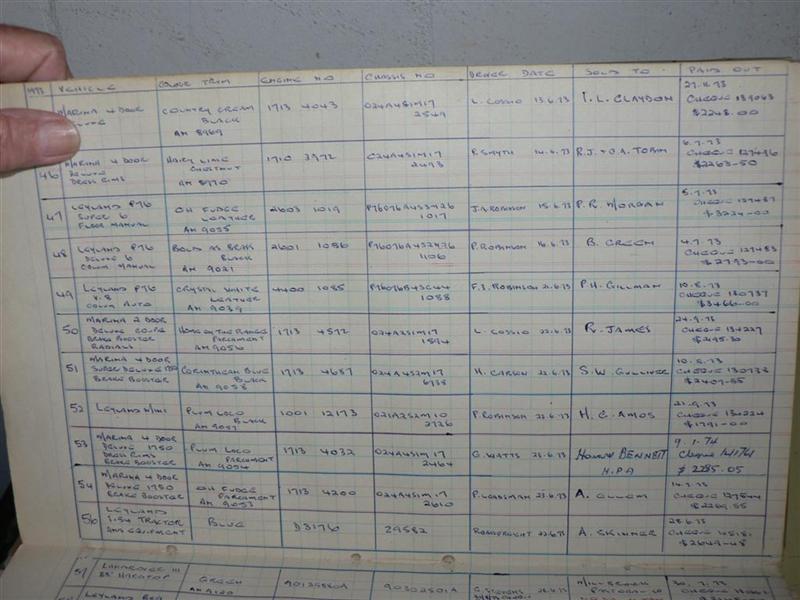 1973 VEHICLE COLOUR TRIM ENGINE NO CHASSIS NO DRIVER DATE SOLD TO PAID OUT
MARINA 4 DOOR COUNTRY CREAM 1713 4043 024A4S1M17 L. COSSIO 13.6.73 T. L. CLAYDON 27.11.73
DELUXE BLACK 2549 CHEQUE 139063
AM 8969 $2248-00
46 MARINA 4 DOOR HAIRY LIME 1710 3972 024A4S1M17 P. SMYTH 14.6.73 R.J. & O.A. TOBIN 6.7.73
DELUXE CHESTNUT 2493 CHEQUE 127496
DRESS RIMS AM 8970 $2263-50
47 LEYLAND P76 OH FUDGE 2603 1019 P76076A4S3M26 J.A. ROBINSON 15.6.73 P. R. MORGAN 5.7.73
SUPER 6 LEATHER 1017 CHEQUE 127487
FLOOR MANUAL AM 9035 $3224-00
48 LEYLAND P76 BOLD AS BRASS 2601 1086 P. ROBINSON 16.6.73 B. GREEN 4.7.73
DELUXE 6 BLACK 1106 CHEQUE 127483
COLUMN MANUAL AM 9021 $2793-00
49 LEYLAND P76 CRYSTAL WHITE 4400 1085 F.J. ROBINSON 21.6.73 P.H. GILLMAN 10.8.73
V.8 LEATHER 1088 CHEQUE 130737
COLUMN AUTO AM 9039 $3466-00
50 MARINA 2 DOOR HOME ON THE RANGE 1713 4572 024A2S1M17 L. COSSIO 22.6.73 R. JAMES 24.9.73
DELUXE COUPE PARCHMENT 1894 CHEQUE 134227
BRAKE BOOSTER AM 9056
RADIALS
51 MARINA 4 DOOR CORINTHIAN BLUE 1713 4687 024A4S2M17 H. CARSON 22.6.73 S.W. GULLIVER 10.8.73
SUPER DELUXE 1750 BLACK 6738 CHEQUE 130738
BRAKE BOOSTER AM 9058 $2407-55
52 LEYLAND MINI PLUM LOCO 1001 12173 021A2S2M10 P. ROBINSON 22.6.73 H. C. AMOS 21.9.73
BLACK 2726 CHEQUE 134224
$1791-00
53 MARINA 4 DOOR PLUM LOCO 1713 4032 024A4S1M17 G. WATTS 23.6.73 HOWARD BENNETT 9.1.74
DELUXE 1750 PARCHMENT 2464 H.P.A Cheque 141761
DRESS RIMS AM 9054 $ 2285.05
BRAKE BOOSTER
54 MARINA 4 DOOR OH FUDGE 1713 4200 024A4S1M17 P. LOADSMAN 23.6.73 A. CLEM
DELUXE 1750 PARCHMENT 2610 CHEQUE
BRAKE BOOSTER AM 9053 $2269.55
56 LEYLAND BLUE D3176 29582 22.6.73 A. SKINNER 28.6.73
TRACTOR CHEQUE
AND EQUIPMENT $2649-48
57 LANDROVER III GREEN 90302501A G. STEVENS
88" HARDTOP AM
LEYLAND